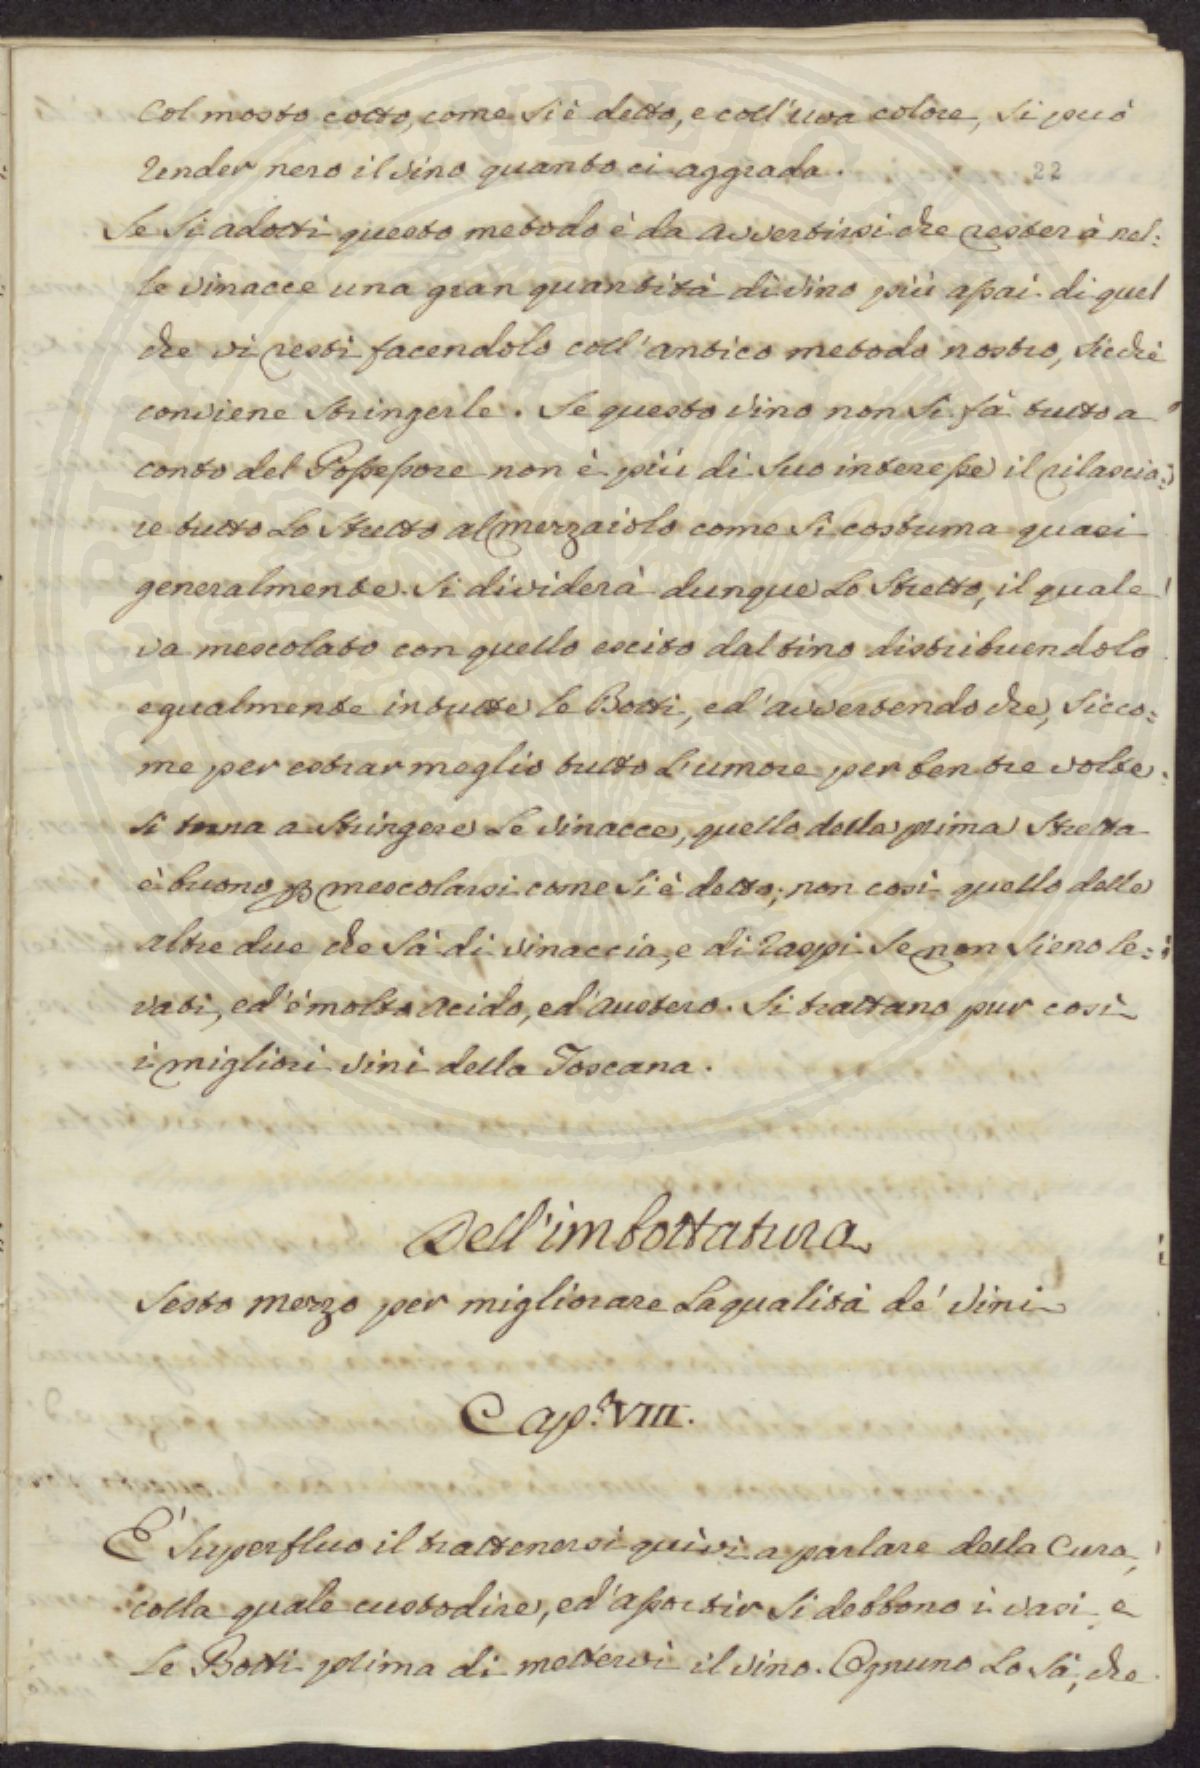 Col mosto cotto, come si è detto, e coll'uva colore, si può
render nero il vino quanto ci aggrada.
22
Se si adotti questo metodo è da avvertirsi che resterà nel=
le vinacce una gran quantità di vino più assai di quel
che vi resti facendolo coll'antico metodo nostro, sicchè
conviene stringerle. Se questo vino non si fà tutto a
conto del Possessore non è più di suo interesse il rilascia=
re tutto lo stretto al mezzaiolo come si costuma quasi
generalmente. Si dividerà dunque lo stretto, il quale
va mescolato con quello escito dal tino distribuendolo
egualmente in tutte le Botti, ed' avvertendo che, sicco=
me per estrar meglio tutto l'umore per ben tre volte
si torna a stringere le vinacce, quello della prima stretta
è buono per mescolarsi come si è detto; non così quello delle
altre due che sà di vinaccia, e di raspi se non sieno le=
vati, ed' è molto acido, ed' austero. Si trattano pur così
i migliori vini della Toscana.
Dell'imbottatura
Sesto mezzo per migliorare la qualità de' vini
Cap.º VIII.
E' superfluo il trattenersi quivi a parlare della cura,
colla quale custodire, ed' assortir si debbono i vasi e
le Botti prima di mettervi il vino. Ognuno lo sà, che